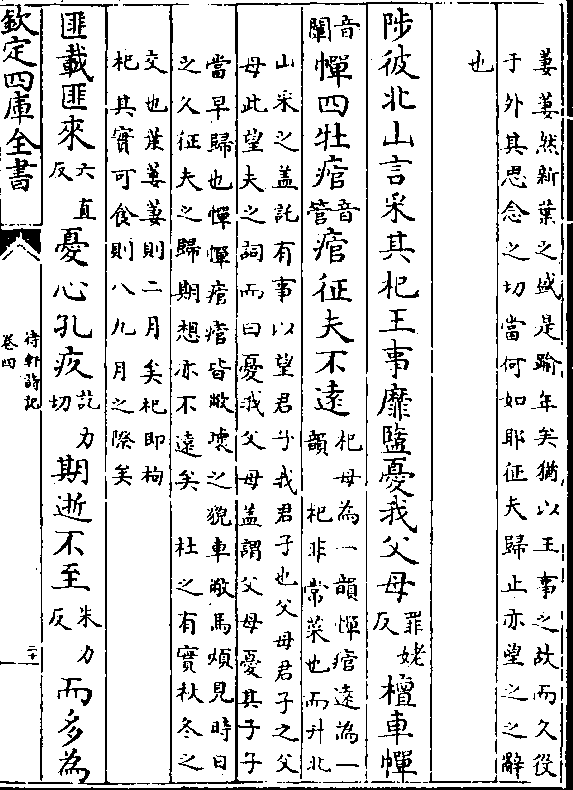 萋萋然新葉之盛是踰年矣猶以王事之故而久役
于外其思念之切當何如耶征夫歸止亦望之之辭
也
陟彼北山言采其杞王事靡盬憂我父母罪姥反檀車幝
音闡幝四牡痯音管痯征夫不遠杞母為一韻幝痯遠為一
韻 杞非常菜也而升北
山采之盖託有事以望君子我君子也父母君子之父
母此望夫之詞而曰憂我父母盖謂父母憂其子子
當早歸也幝幝痯痯皆敝壞之貌車敝馬煩見時日
之久征夫之歸期想亦不遠矣 杜之有實秋冬之
交也葉萋萋則二月矣杞即枸
杞其實可食則八九月之際矣
匪載匪來六直反憂心孔疚訖力切期逝不至朱力反而多為
欽定四庫全書
待軒詩記
卷四